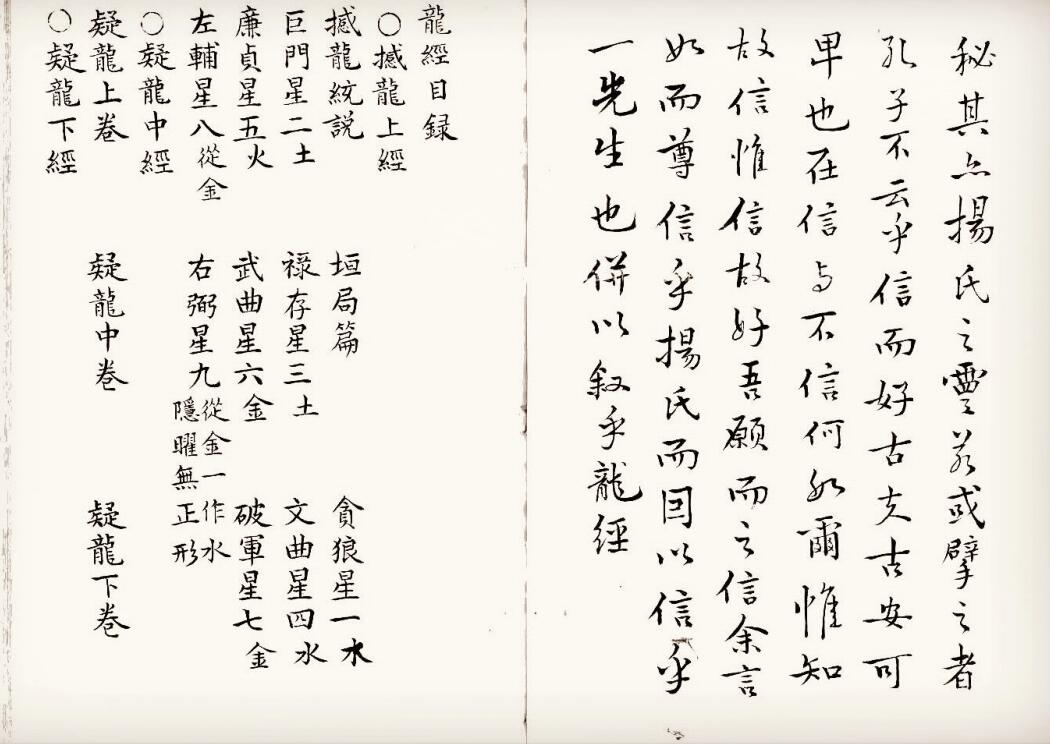 秘其亦揚氏之靈若或擘之者
孔子不云乎信而好古夫古安可
卑也在信与不信何如爾惟知
故信惟信故好吾願而之信余言
如而尊信乎揚氏而因以信乎
一先生也併以叙乎龍經
龍經目録
〇撼龍上經
撼龍統説 垣局篇 貪狼星一水
巨門星二土 禄存星三土 文曲星四水
廉貞星五火 武曲星六金 破軍星七金
左輔星八從金 右弼星九從金一作水隱曜無正形
〇疑龍中經
疑龍上卷 疑龍中卷 疑龍下卷
〇疑龍下經